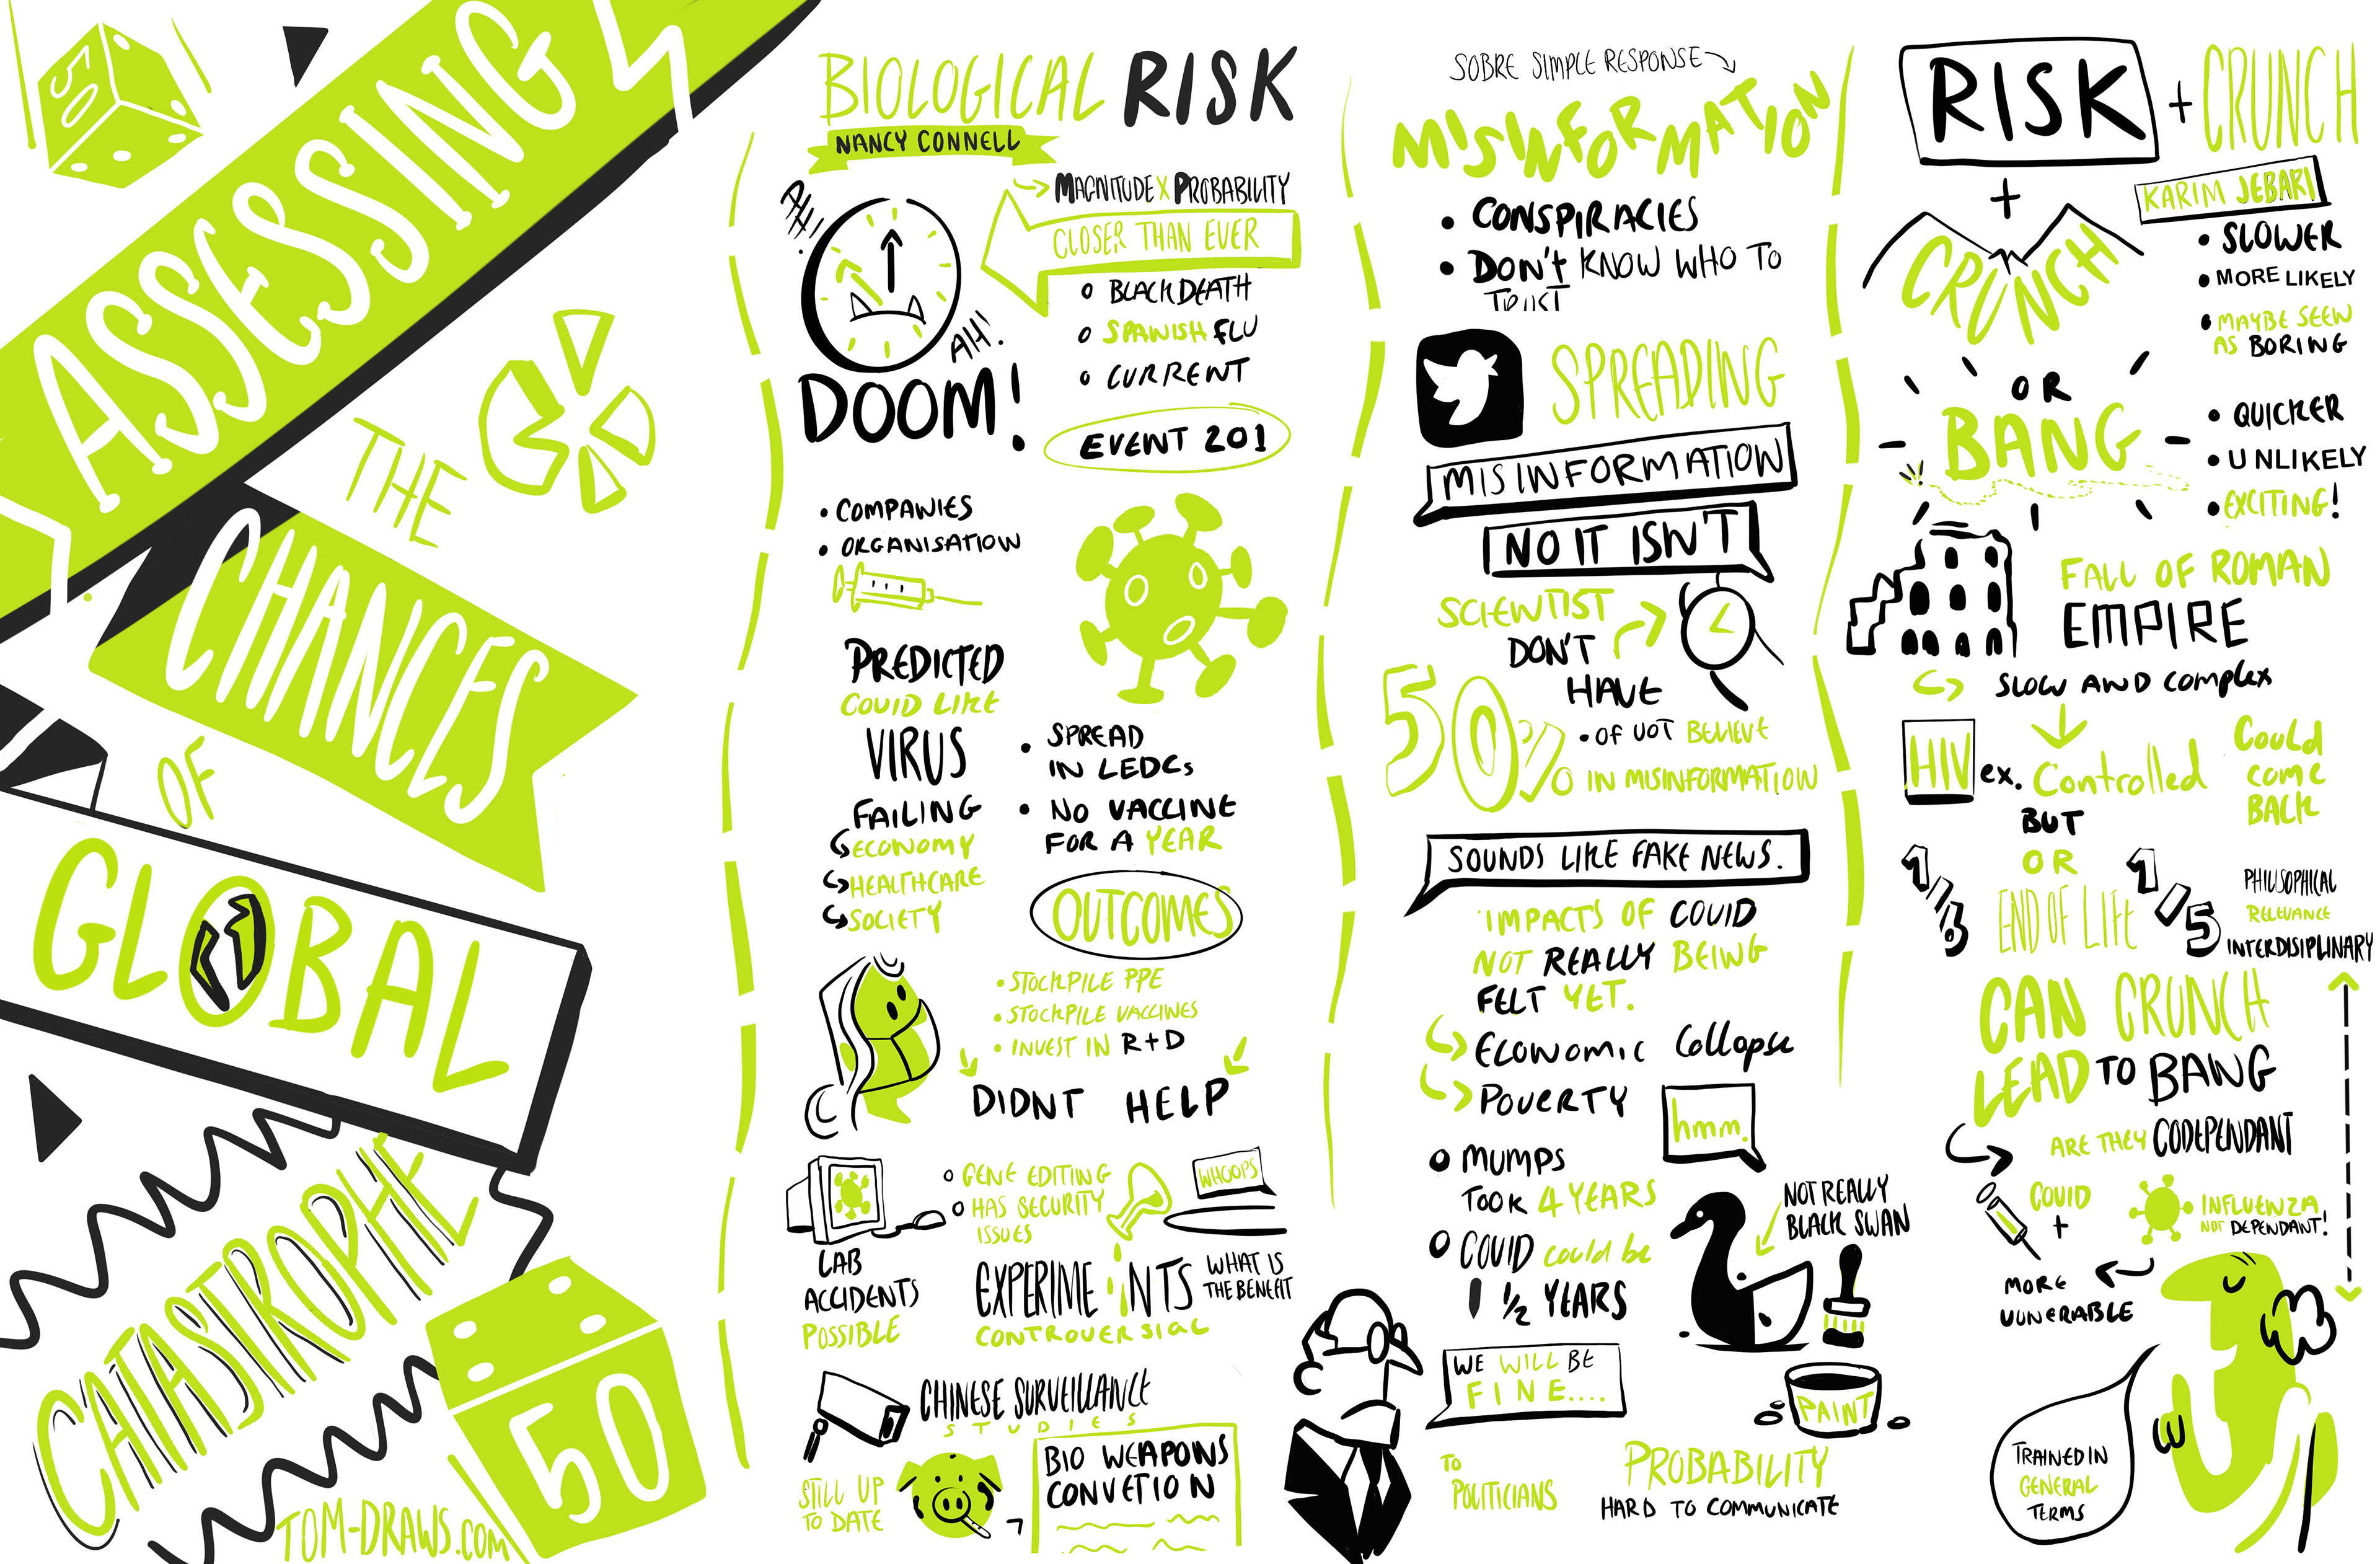 50
ASSESSING
THE
CHANCES
OF
GLOBAL
CATASTROPHE
50
TOM-DRAWS.COM
BIOLOGICAL RISK
NANCY CONNELL
MAGNITUDE X PROBABILITY
CLOSER THAN EVER
BLACK DEATH
SPANISH FLU
CURRENT
AH!
DOOM!
EVENT 201
• COMPANIES
• ORGANISATION
PREDICTED
COVID LIKE
VIRUS
FAILING
ECONOMY
HEALTHCARE
SOCIETY
• SPREAD
IN LEDCs
• NO VACCINE
FOR A YEAR
OUTCOMES
• STOCKPILE PPE
• STOCKPILE VACCINES
• INVEST IN R+D
DIDNT HELP
LAB
ACCIDENTS
POSSIBLE
GENE EDITING
HAS SECURITY
ISSUES
WHOOPS
EXPERIMENTS
CONTROVERSIAL
WHAT IS
THE BENEFIT
CHINESE SURVEILLANCE
STUDIES
STILL UP
TO DATE
BIO WEAPONS
CONVETION
SOBRE SIMPLE RESPONSE
MISINFORMATION
• CONSPIRACIES
• DON'T KNOW WHO TO
SPREADING
MISINFORMATION
NO IT ISN'T
SCIENTIST
DON'T
HAVE
50%
• OF UOT BELIEVE
IN MISINFORMATION
SOUNDS LIKE FAKE NEWS.
IMPACTS OF COVID
NOT REALLY BEING
FELT YET.
ECONOMIC Collapse
POVERTY
hmm.
MUMPS
TOOK 4 YEARS
COVID could be
1 1/2 YEARS
NOT REALLY
BLACK SWAN
WE WILL BE
FINE....
PAINT
TO
POLITICIANS
PROBABILITY
HARD TO COMMUNICATE
RISK + CRUNCH
+
CRUNCH
KARIM JEBARI
• SLOWER
• MORE LIKELY
• MAYBE SEEN
AS BORING
OR
BANG
• QUICKER
• UNLIKELY
• EXCITING!
FALL OF ROMAN
EMPIRE
SLOW AND complex
HIV ex. Controlled
BUT
Could
come
BACK
OR
1/3
END OF LIFE
1/5
PHILISOPHICAL
RELEVANCE
INTERDISIPLINARY
CAN CRUNCH
LEAD TO BANG
ARE THEY CODEPENDANT
COVID
+
INFLUENZA
NOT DEPENDANT!
MORE
VUNERABLE
TRAINED IN
GENERAL
TERMS